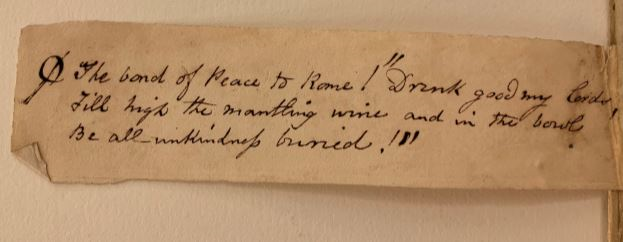 The bond of Peace to Rome! "Drink good my lords,
Fill high the mantling wine and in the bowl
Be all unkindness buried.!!!